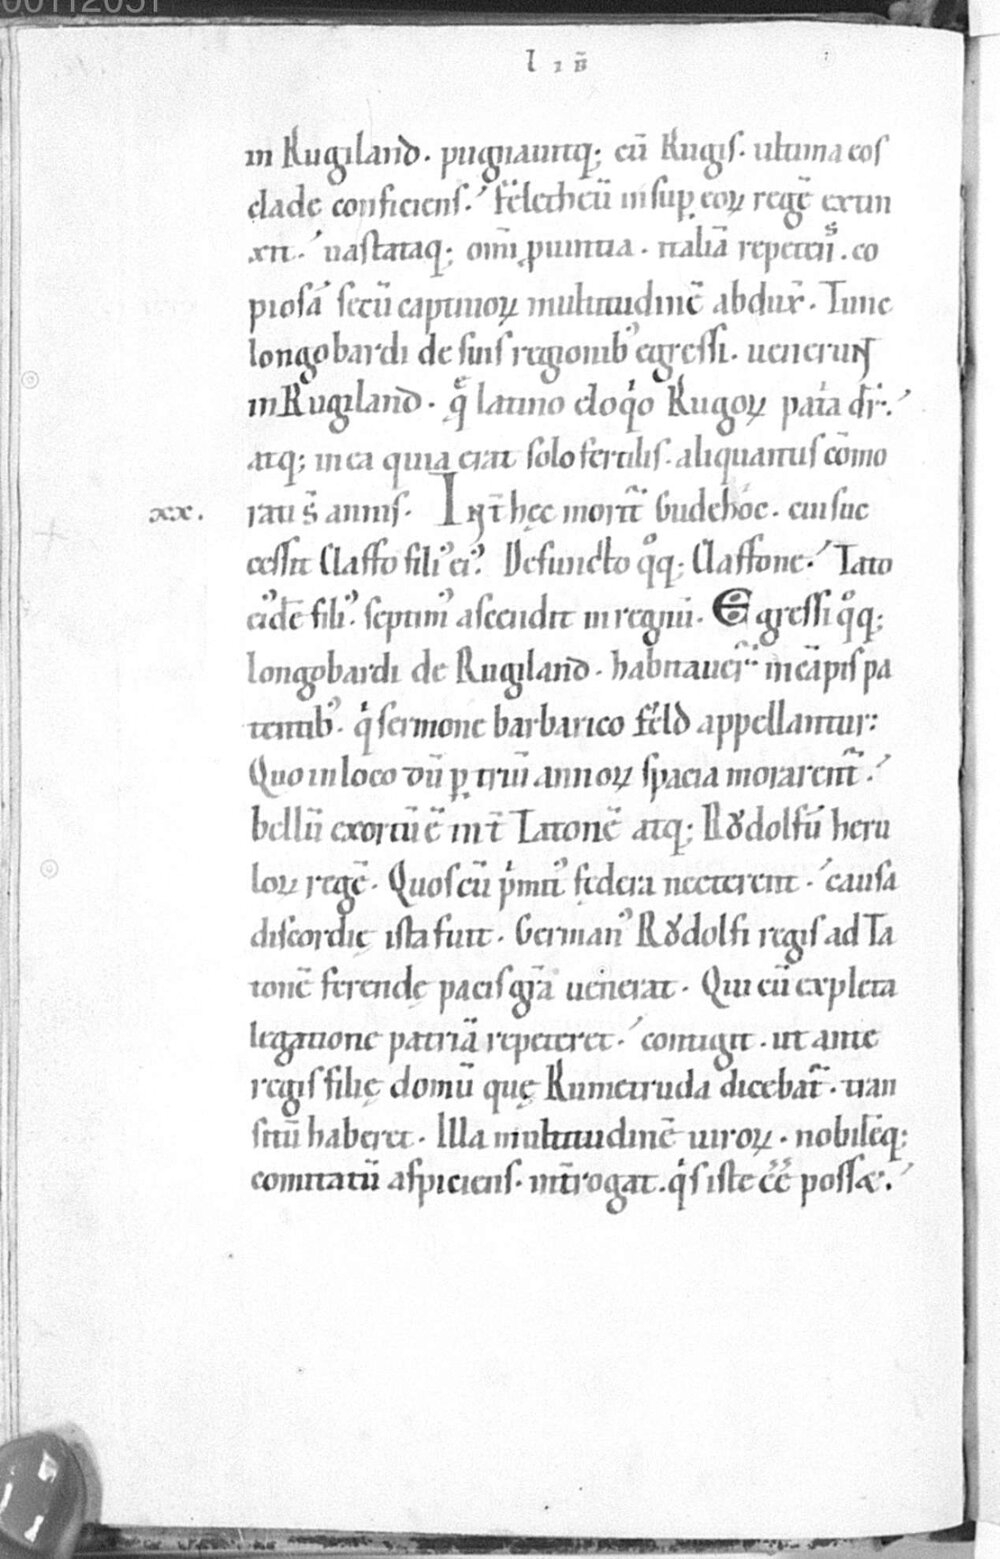 00112051
l i b̄
in Rugiland. pugnauitq; cū Rugis. ultima eos
clade conficiens. felethcū insuꝑ eoꝝ regē extin
xit. uastataq; omī ꝓuintia. italiā repetēs. co
piosā secū captiuoꝝ multitudinē abdux̄. Tunc
longobardi de suis regionib᾽ egressi. uenerunt
in Rugiland. q̄ latino eloqͥo Rugoꝝ patͥa dr̄.
atq; in ea quia erat solo fertilis. aliquantis cōmo
xx. rati s̄ annis. Int̄ hęc moritͬ Gudehoc. cui suc
cessit Claffo fili᾽ ei᾽. Defuncto qͦq; Claffone. Tato
ei᾽dē fili᾽. septim᾽ ascendit in regnū. Egressi qͦq;
longobardi de Rugiland. habitauer̄ in cāpis pa
tentib᾽. qͥ sermone barbarico feld appellantur:
Quo in loco dū ꝑ triū annoꝝ spacia morarent̄.
bellū exortū ē int̄ Tatonē atq; Rodolfū heru
loꝝ regē. Quos cū pͥmit᾽ federa necterent. causa
discordię ista fuit. German᾽ Rodolfi regis ad Ta
tonē ferendę pacis gr̄a uenerat. Qui cū expleta
legatione patriā repeteret. contigit. ut ante
regis filię domū quę Rumetruda dicebat̄. tran
sitū haberet. Illa multitudinē uiroꝝ. nobilēq;
comitatū aspiciens. int̄rogat. qͥs iste eē̄ possæ.